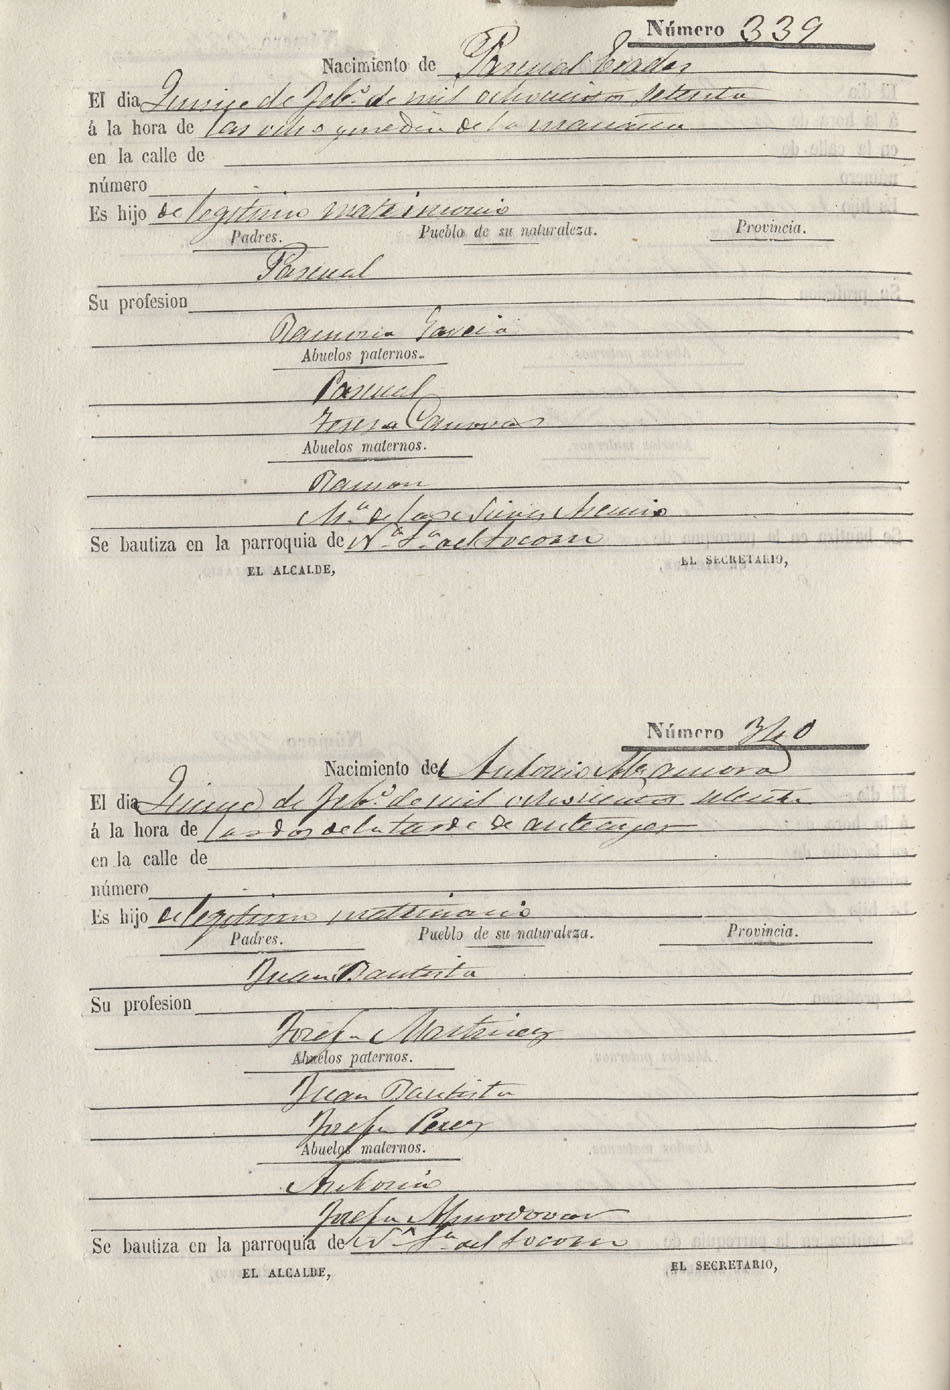 Número 339
Nacimiento de Pascual
El dia Quince de Feb.º de mil ochocientos setenta
á la hora de las ocho y media de la mañana
en la calle de
número
Es hijo de legitimo matrimonio
Padres. Pueblo de su naturaleza. Provincia.
Pascual
Su profesion
Ramona Garcia
Abuelos paternos.
Pascual
Teresa Canovas
Abuelos maternos.
Ramon
M.ª de las Nieves
Se bautiza en la parroquia de N.ª S.ª del Socorro
EL ALCALDE, EL SECRETARIO,
Número 340
Nacimiento de Antonio
El dia Quince de Feb.º de mil ochocientos setenta
á la hora de las dos de la tarde de anteayer
en la calle de
número
Es hijo de legitimo matrimonio
Padres. Pueblo de su naturaleza. Provincia.
Juan Bautista
Su profesion
Josefa Martinez
Abuelos paternos.
Juan Bautista
Josefa Perez
Abuelos maternos.
Antonio
Josefa Almodovar
Se bautiza en la parroquia de N.ª S.ª del Socorro
EL ALCALDE, EL SECRETARIO,